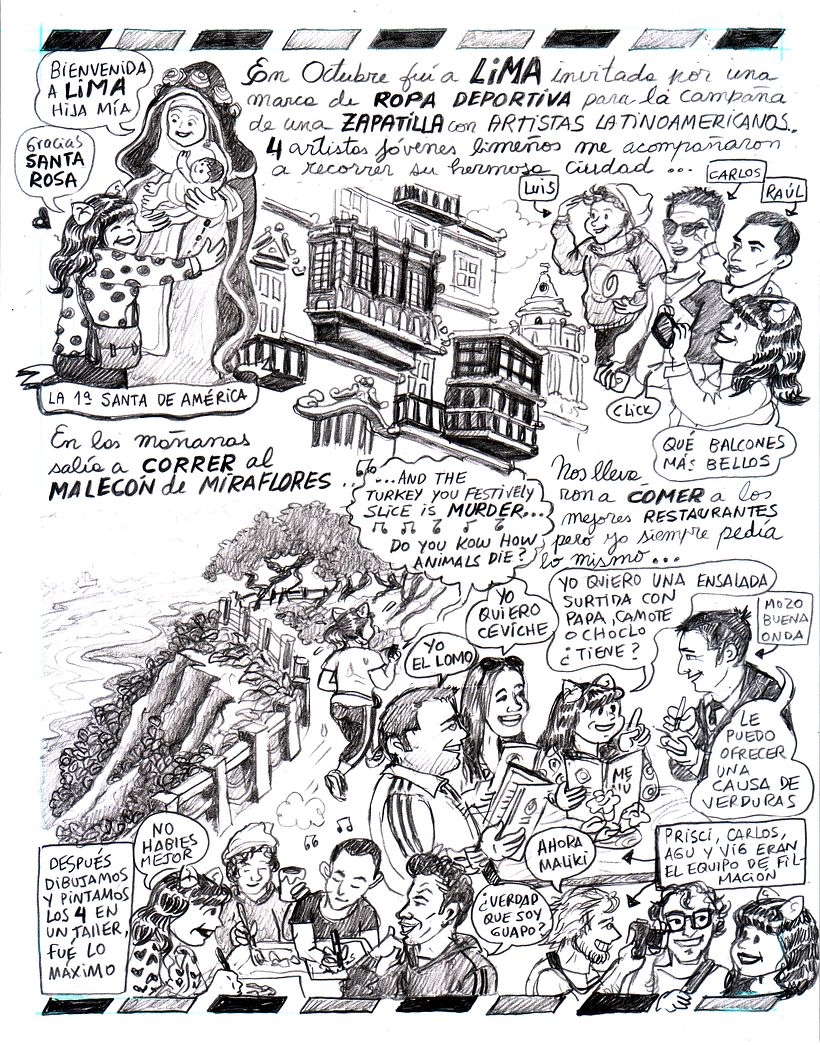 BIENVENIDA
A LIMA
HIJA MÍA
Gracias
SANTA
ROSA
LA 1ª SANTA DE AMÉRICA
En Octubre fuí a LIMA invitada por una
marca de ROPA DEPORTIVA para la campaña
de una ZAPATILLA con ARTISTAS LATINOAMERICANOS..
4 artistas jóvenes limeños me acompañaron
a recorrer su hermosa ciudad ...
LUIS
CARLOS
RAÚL
CLICK
QUÉ BALCONES
MÁS BELLOS
En las mañanas
salía a CORRER al
MALECÓN de MIRAFLORES ..
...AND THE
TURKEY YOU FESTIVELY
SLICE IS MURDER...
DO YOU KOW HOW
ANIMALS DIE?
Nos lleva
ron a COMER a los
mejores RESTAURANTES
pero yo siempre pedía
lo mismo...
YO
EL LOMO
YO
QUIERO
CEVICHE
YO QUIERO UNA ENSALADA
SURTIDA CON
PAPA, CAMOTE
O CHOCLO
¿TIENE?
MOZO
BUENA
ONDA
ME
NU
LE
PUEDO
OFRECER
UNA
CAUSA DE
VERDURAS
DESPUÉS
DIBUJAMOS
Y PINTAMOS
LOS 4 EN
UN TALLER,
FUÉ LO
MÁXIMO
NO
HABLES
MEJOR
¿VERDAD
QUE SOY
GUAPO?
AHORA
MALIKI
PRISCI, CARLOS,
AGU Y VIG ERAN
EL EQUIPO DE FIL-
MACIÓN